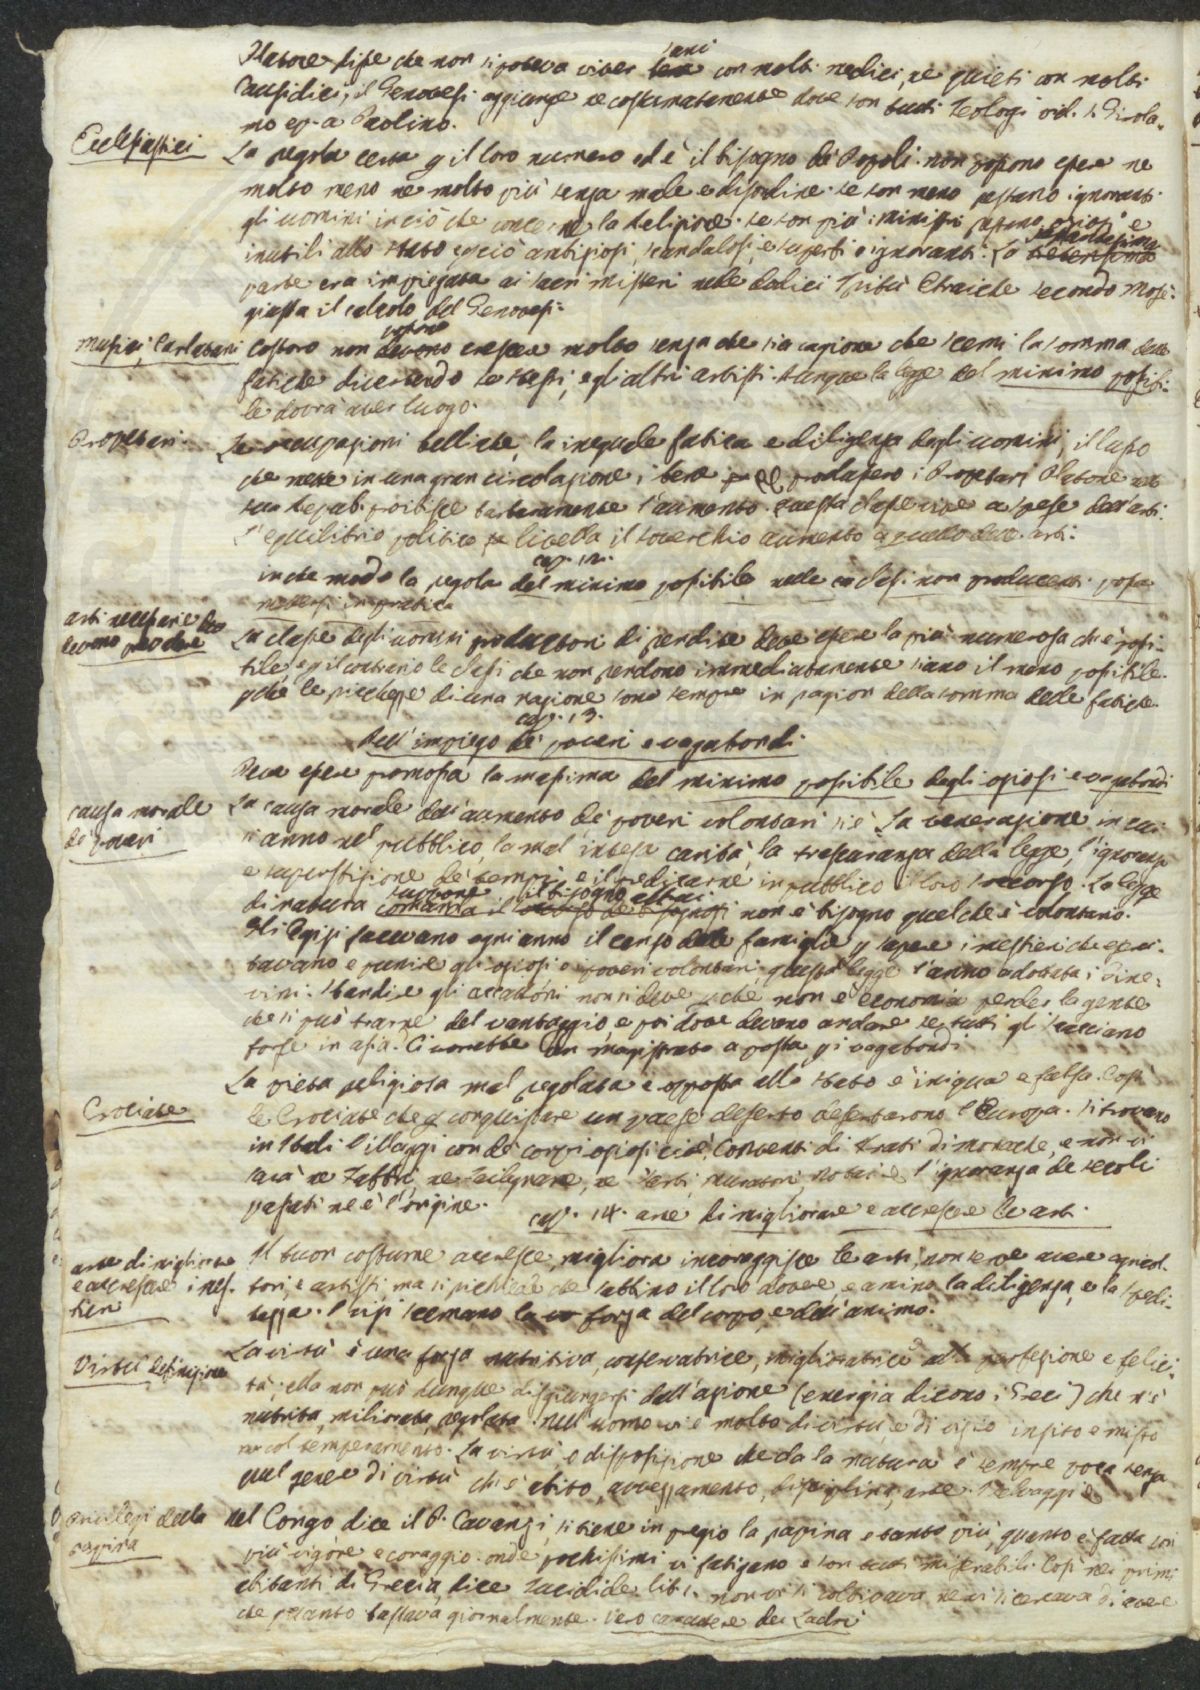 Platone disse che non si poteva viver sani con molti medici, ne quieti con molti
Causidici, il Genovesi aggiunge ne costumatamente dove son tutti Teologi vid. S. Girola-
mo ep. a Paolino.
Ecclesiastici
La regola certa p il loro numero ed è il bisogno de Popoli. non possono essere ne
molto meno ne molto più senza male e disordine. se son meno restano ignoranti
gli uomini in ciò che concerne la Religione. se son più i ministri saranno oziosi e
inutili allo stato e perciò scandalosi, e superbi e ignoranti. La
parte era impiegata ai sacri misteri nelle dodici Tribù Ebraiche secondo Mosè:
giusta il calcolo del Genovesi.
Musici, Carlatani
Costoro non possono crescere molto senza che sia cagione che scemi la somma delle
fatiche divertendo se stessi, e gli altri artisti. dunque la legge del minimo possibi-
le dovrà aver luogo.
Proprietari.
Le occupazioni belliche, la ineguale fatica e diligenza degli uomini, il lusso
che mette in una gran circolazione i beni produssero i Proprietari Platone nella
sua Repub. proibisce l'aumento. questa classe vive a spese dell'arti.
L'equilibrio politico livella il soverchio aumento a quello delle arti.
cap. 12.
in che modo la regola del minimo possibile nelle classi non producenti possa
mettersi in pratica
arti necessarie
devono
La classe degli uomini produttori di rendite deve essere la più numerosa che è possi-
bile, e p il contrario le classi che non rendono immediatamente siano il meno possibile.
pche le ricchezze di una nazione sono sempre in ragion della somma delle fatiche.
cap. 13.
Dell'impiego de' poveri e vagabondi.
Deve essere promossa la massima del minimo possibile degli oziosi e vagabondi
causa morale
de' poveri
La causa morale dell'aumento de' poveri volontari si è la venerazione in cui
si anno nel pubblico, la mal intesa carità, la trascuranza della legge, l'ignoranza
e superstizione de' tempi, e il predicarne in pubblico il loro soccorso. La legge
di natura il bisogno altrui non è bisogno quel che è volontario.
Gli Egizi facevano ogni anno il censo delle famiglie p sapere i mestieri che eserci-
tavano e punire gli oziosi e i poveri volontari, questa legge l'anno adottata i Gine-
vrini. Sbandire gli accattoni non si deve pchè non è economia perder la gente
che si può trarne del vantaggio e poi dove devono andare se tutti gli scacciano
forse in asia. Ci vorrebbe un magistrato a posta p i vagabondi
Crociate
La pieta religiosa mal regolata e opposta allo stato è iniqua e falsa. Così
le Crociate che p conquistare un paese deserto desertarono l'Europa. Si trovano
in Itali Villaggi con de' corpi oziosi cioè, Conventi di Frati di monache, e non vi
sarà ne Fabbri, ne Falegname, ne Sarti, Muratori, Notari è l'ignoranza de' secoli
passati ne è l'origine.
cap. 14. arte di migliorare e accrescere le arti.
arte di migliorare
e accrescere i mes-
tieri
Il buon costume accresce, migliora incoraggisce le arti, non serve avere agricol-
tori, e artisti, ma si richiede che sabbino il loro dovere, e amino la diligenza, e la spedi-
tezza. I vizi scemano la forza del corpo, e dell'animo.
Virtù definizione
La virtù è una forza nutritiva, conservatrice, miglioratrice alla perfezione e felici-
tà, ella non può dunque disgiungersi dall'azione (energia dicono i Greci) che n'è
nutrita, miliorata, regolata. Nell'uomo vi è molto di virtù, e di vizio insito e misto
col temperamento. La virtù, o disposizione che da la natura è sempre poca senza
quel genere di virtù che è abito, avvezzamento, disciplina, arte. I selvaggi
Privilegi della
rapina
nel Congo dice il P. Cavanzi, si tiene in pregio la rapina e tanto più, quanto è fatta con
più vigore e coraggio. onde pochissimi vi fatigano e son tutti miserabili Così ne' primi
abitanti di Grecia, dice Tucidide lib. 1. non vi si coltivava ne vi si cercava di avere
che quanto bastava giornalmente. Vero carattere dei Ladri